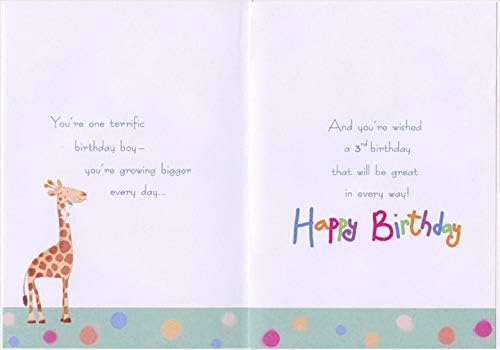 You're one terrific
birthday boy—
you're growing bigger
every day...
And you're wished
a 3rd birthday
that will be great
in every way!
Happy Birthday